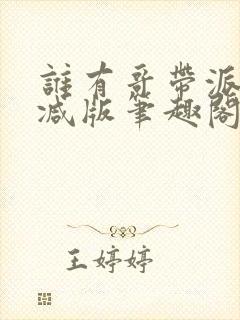 誰有哥帶派
减版筆趣閣
王婷婷